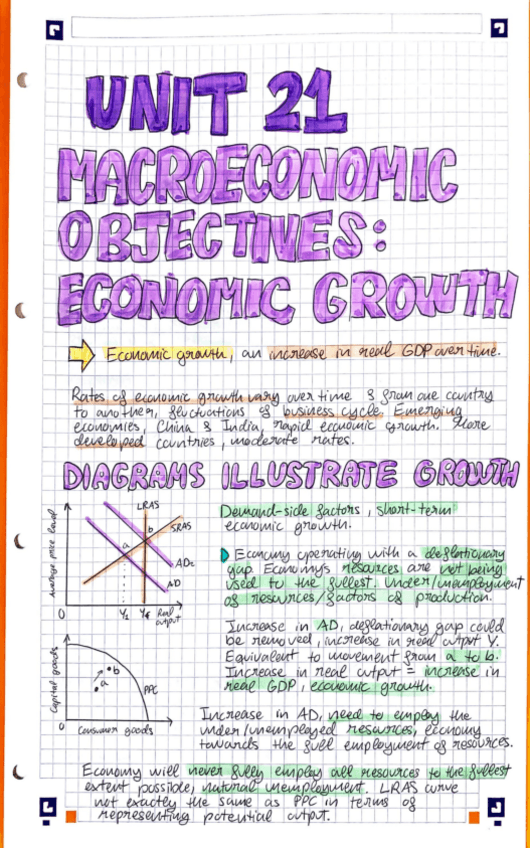 UNIT 21
MACROECONOMIC
OBJECTIVES:
ECONOMIC GROWTH
Economic growth, an increase in real GDP over time.
Rates of economic growth vary over time & from one country
to another, fluctuations of business cycle. Emerging
economies, China & India, rapid economic growth. More
developed countries, moderate rates.
DIAGRAMS ILLUSTRATE GROWTH
Average price level
LRAS
SRAS
a
b
AD2
AD
0
Y1
Yf
Real
output
Demand-side factors, short-term
economic growth.
Economy operating with a deflationary
gap. Economy's resources are not being
used to the fullest. Under/unemployment
of resources/factors of production.
Increase in AD, deflationary gap could
be removed, increase in real output Y.
Equivalent to movement from a to b.
Increase in real output = increase in
real GDP, economic growth.
Capital goods
a
b
PPC
0
Consumer goods
Increase in AD, need to employ the
under/unemployed resources, economy
towards the full employment of resources.
Economy will never fully employ all resources to the fullest
extent possible, natural unemployment. LRAS curve
not exactly the same as PPC in terms of
representing potential output.